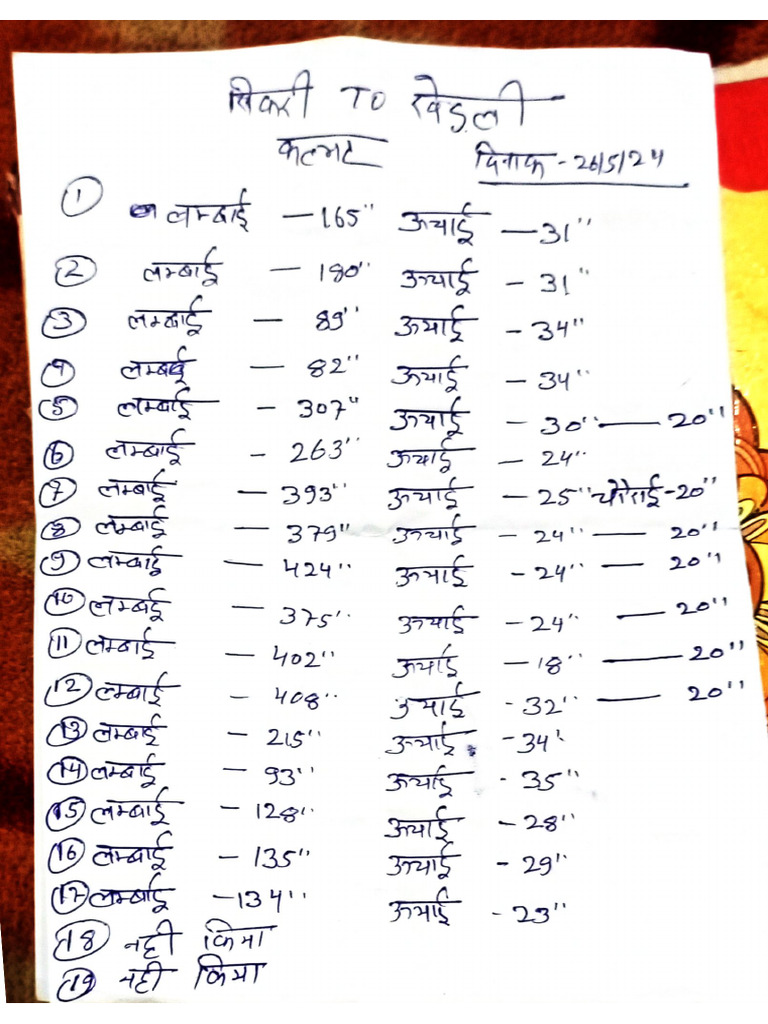 सिकरी TO खेड़ली
कलभट दिनाक - 26/5/24
① लम्बाई — 165" ऊचाई — 31"
② लम्बाई — 180" ऊचाई - 31"
③ लम्बाई — 89" ऊचाई - 34"
④ लम्बाई — 82" ऊचाई - 34"
⑤ लम्बाई - 307" ऊचाई - 30" — 20"
⑥ लम्बाई - 263" ऊचाई - 24"
⑦ लम्बाई — 393" ऊचाई - 25" चौराई - 20"
⑧ लम्बाई — 379" ऊचाई - 24" — 20"
⑨ लम्बाई — 424" ऊचाई - 24" — 20"
⑩ लम्बाई — 375" ऊचाई - 24" — 20"
⑪ लम्बाई — 402" ऊचाई - 18" — 20"
⑫ लम्बाई - 408" ऊचाई - 32" — 20"
⑬ लम्बाई - 215" ऊचाई - 34'
⑭ लम्बाई - 93" ऊचाई - 35"
⑮ लम्बाई - 128" ऊचाई - 28"
⑯ लम्बाई - 135" ऊचाई - 29"
⑰ लम्बाई - 134" ऊचाई - 23"
⑱ नही किया
⑲ नही किया